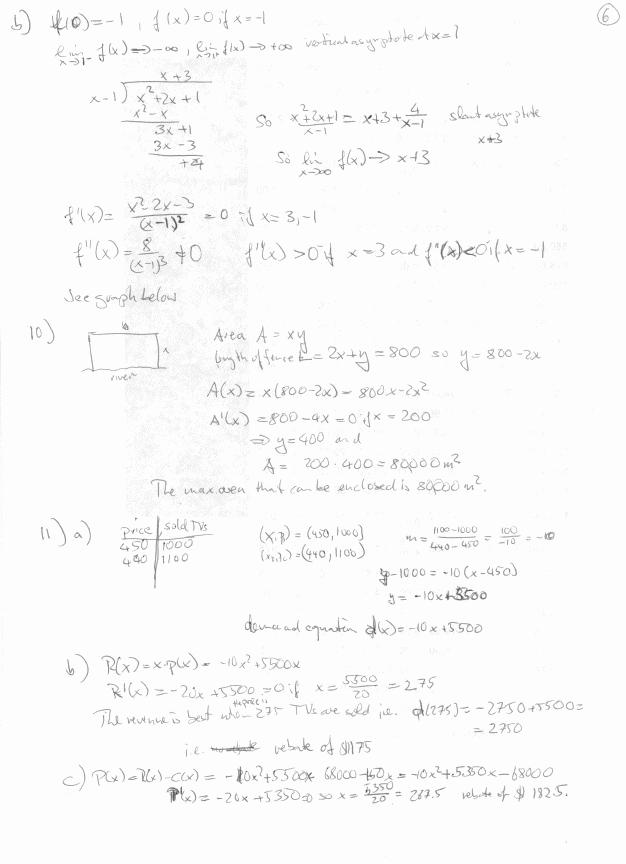 6
b) f(0) = -1 , f(x) = 0 if x = -1
lim x→1⁻ f(x) → -∞ , lim x→1⁺ f(x) → +∞ vertical asymptote at x = 1
x + 3
x-1 ) x²+2x+1
x² - x
3x+1
3x-3
+4
So (x²+2x+1)/(x-1) = x+3+ 4/(x-1) slant asymptote
x+3
So lim x→∞ f(x) → x+3
f'(x) = (x²-2x-3)/(x-1)² = 0 if x = 3, -1
f''(x) = 8/(x-1)³ ≠ 0 f''(x) > 0 if x = 3 and f''(x) < 0 if x = -1
See graph below
10)
x
river
Area A = xy
length of fence L = 2x+y = 800 so y = 800-2x
A(x) = x(800-2x) = 800x-2x²
A'(x) = 800-4x = 0 if x = 200
⇒ y = 400 and
A = 200·400 = 80000 m²
The max area that can be enclosed is 80000 m².
11) a) price | sold TVs
450 | 1000
440 | 1100
= (450, 1000)
= (440, 1100)
m = (1100-1000)/(440-450) = 100/-10 = -10
y-1000 = -10(x-450)
y = -10x+5500
demand equation d(x) = -10x+5500
b) R(x) = x·p(x) = -10x²+5500x
R'(x) = -20x+5500 = 0 if x = 5500/20 = 275
The revenue is best when 275 TVs are sold i.e. d(275) = -2750+5500 =
= 2750
i.e. rebate of $175
c) P(x) = R(x)-C(x) = -10x²+5500x - 68000 - 150x = -10x²+5350x-68000
P'(x) = -20x+5350 = 0 so x = 5350/20 = 267.5 rebate of $ 182.5.